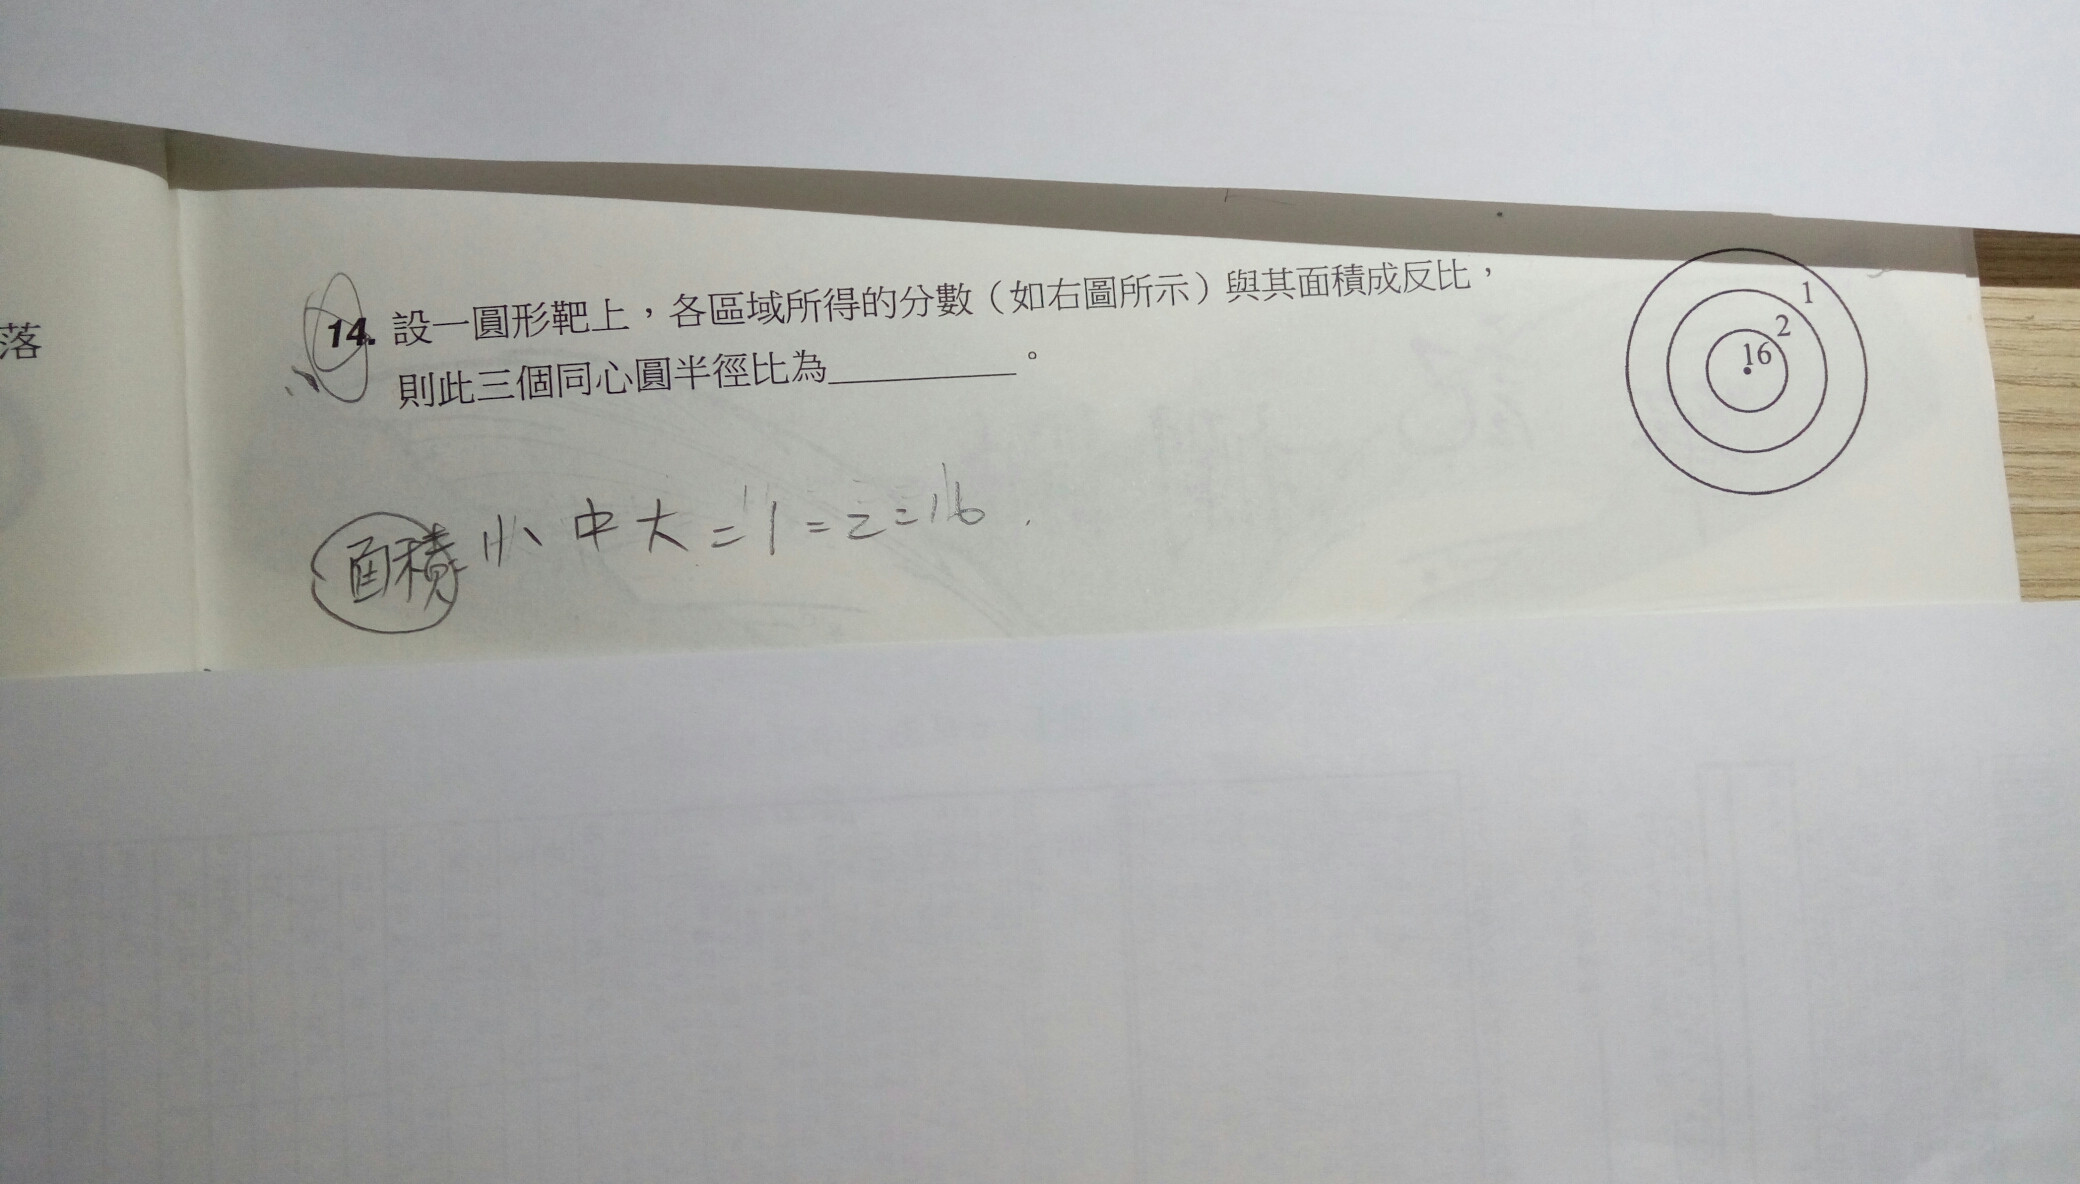 落
14. 設一圓形靶上，各區域所得的分數（如右圖所示）與其面積成反比，
則此三個同心圓半徑比為__________。
1
2
16
面積 小 中 大 = 1 = 2 = 16